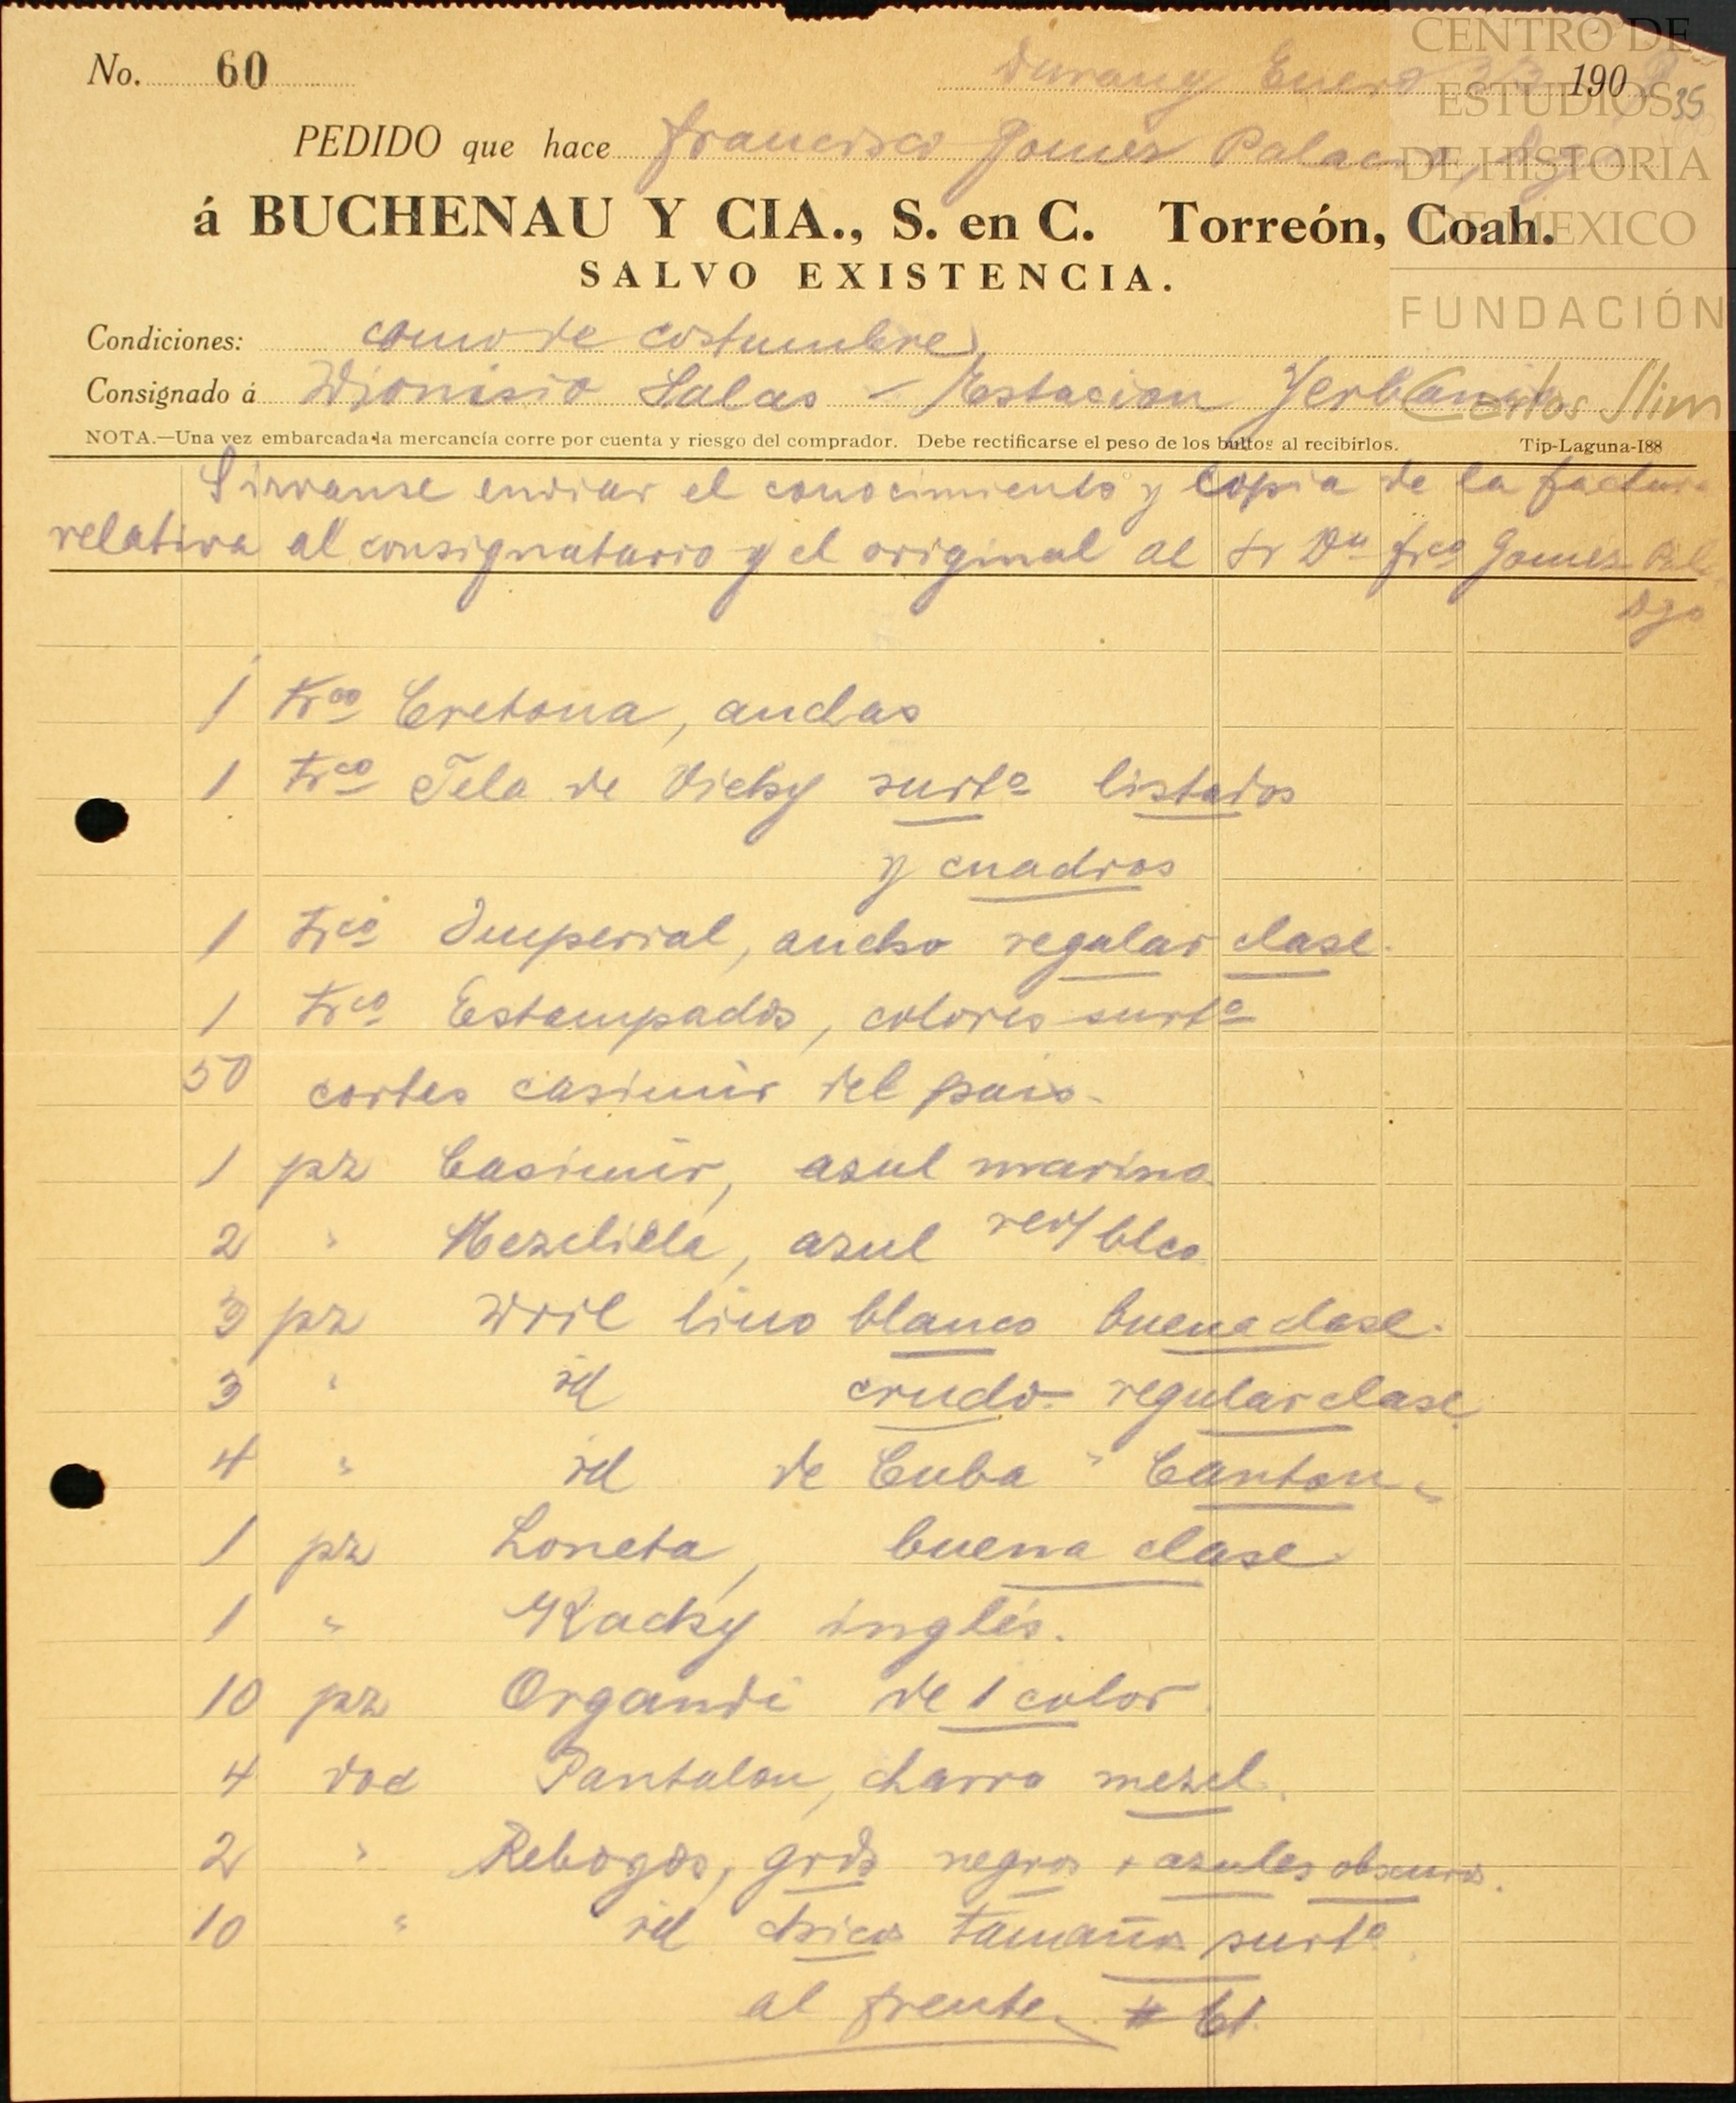 No. 60
Durang Enero 190
35
PEDIDO que hace Francisco Gomez Palacio, Dgo
á BUCHENAU Y CIA., S. en C. Torreón, Coah.
SALVO EXISTENCIA.
Condiciones: como de costumbre
Consignado á Dionisio Salas - Estacion Yerbanis
NOTA.—Una vez embarcada la mercancía corre por cuenta y riesgo del comprador. Debe rectificarse el peso de los bultos al recibirlos. Tip-Laguna-I88
Sirvanse enviar el conocimiento y copia de la factura
relativa al consignatario y el original al Sr Dn Frco Gomez Pal
Dgo
1 trco Cretona, anchas
1 trco Tela de Vichy surto listados
y cuadros
1 trco Imperial, ancho regular clase.
1 trco Estampados, colores surto
50 cortes casimir del pais.
1 pz Casimir, azul marino
2 " Mezclilla, azul rev/ blco
3 pz Dril lino blanco buena clase.
3 " id crudo regular clase
4 " id de Cuba "Canton"
1 pz Loneta, buena clase
1 " Kacky inglés.
10 pz Organdi de 1 color.
4 doc Pantalon, charro mezcl.
2 " Rebozos, grds negros + azules obscuros.
10 " id chicos tamaños surto
al frente # 61.
CENTRO DE
ESTUDIOS
DE HISTORIA
DE MEXICO
FUNDACIÓN
Carlos Slim